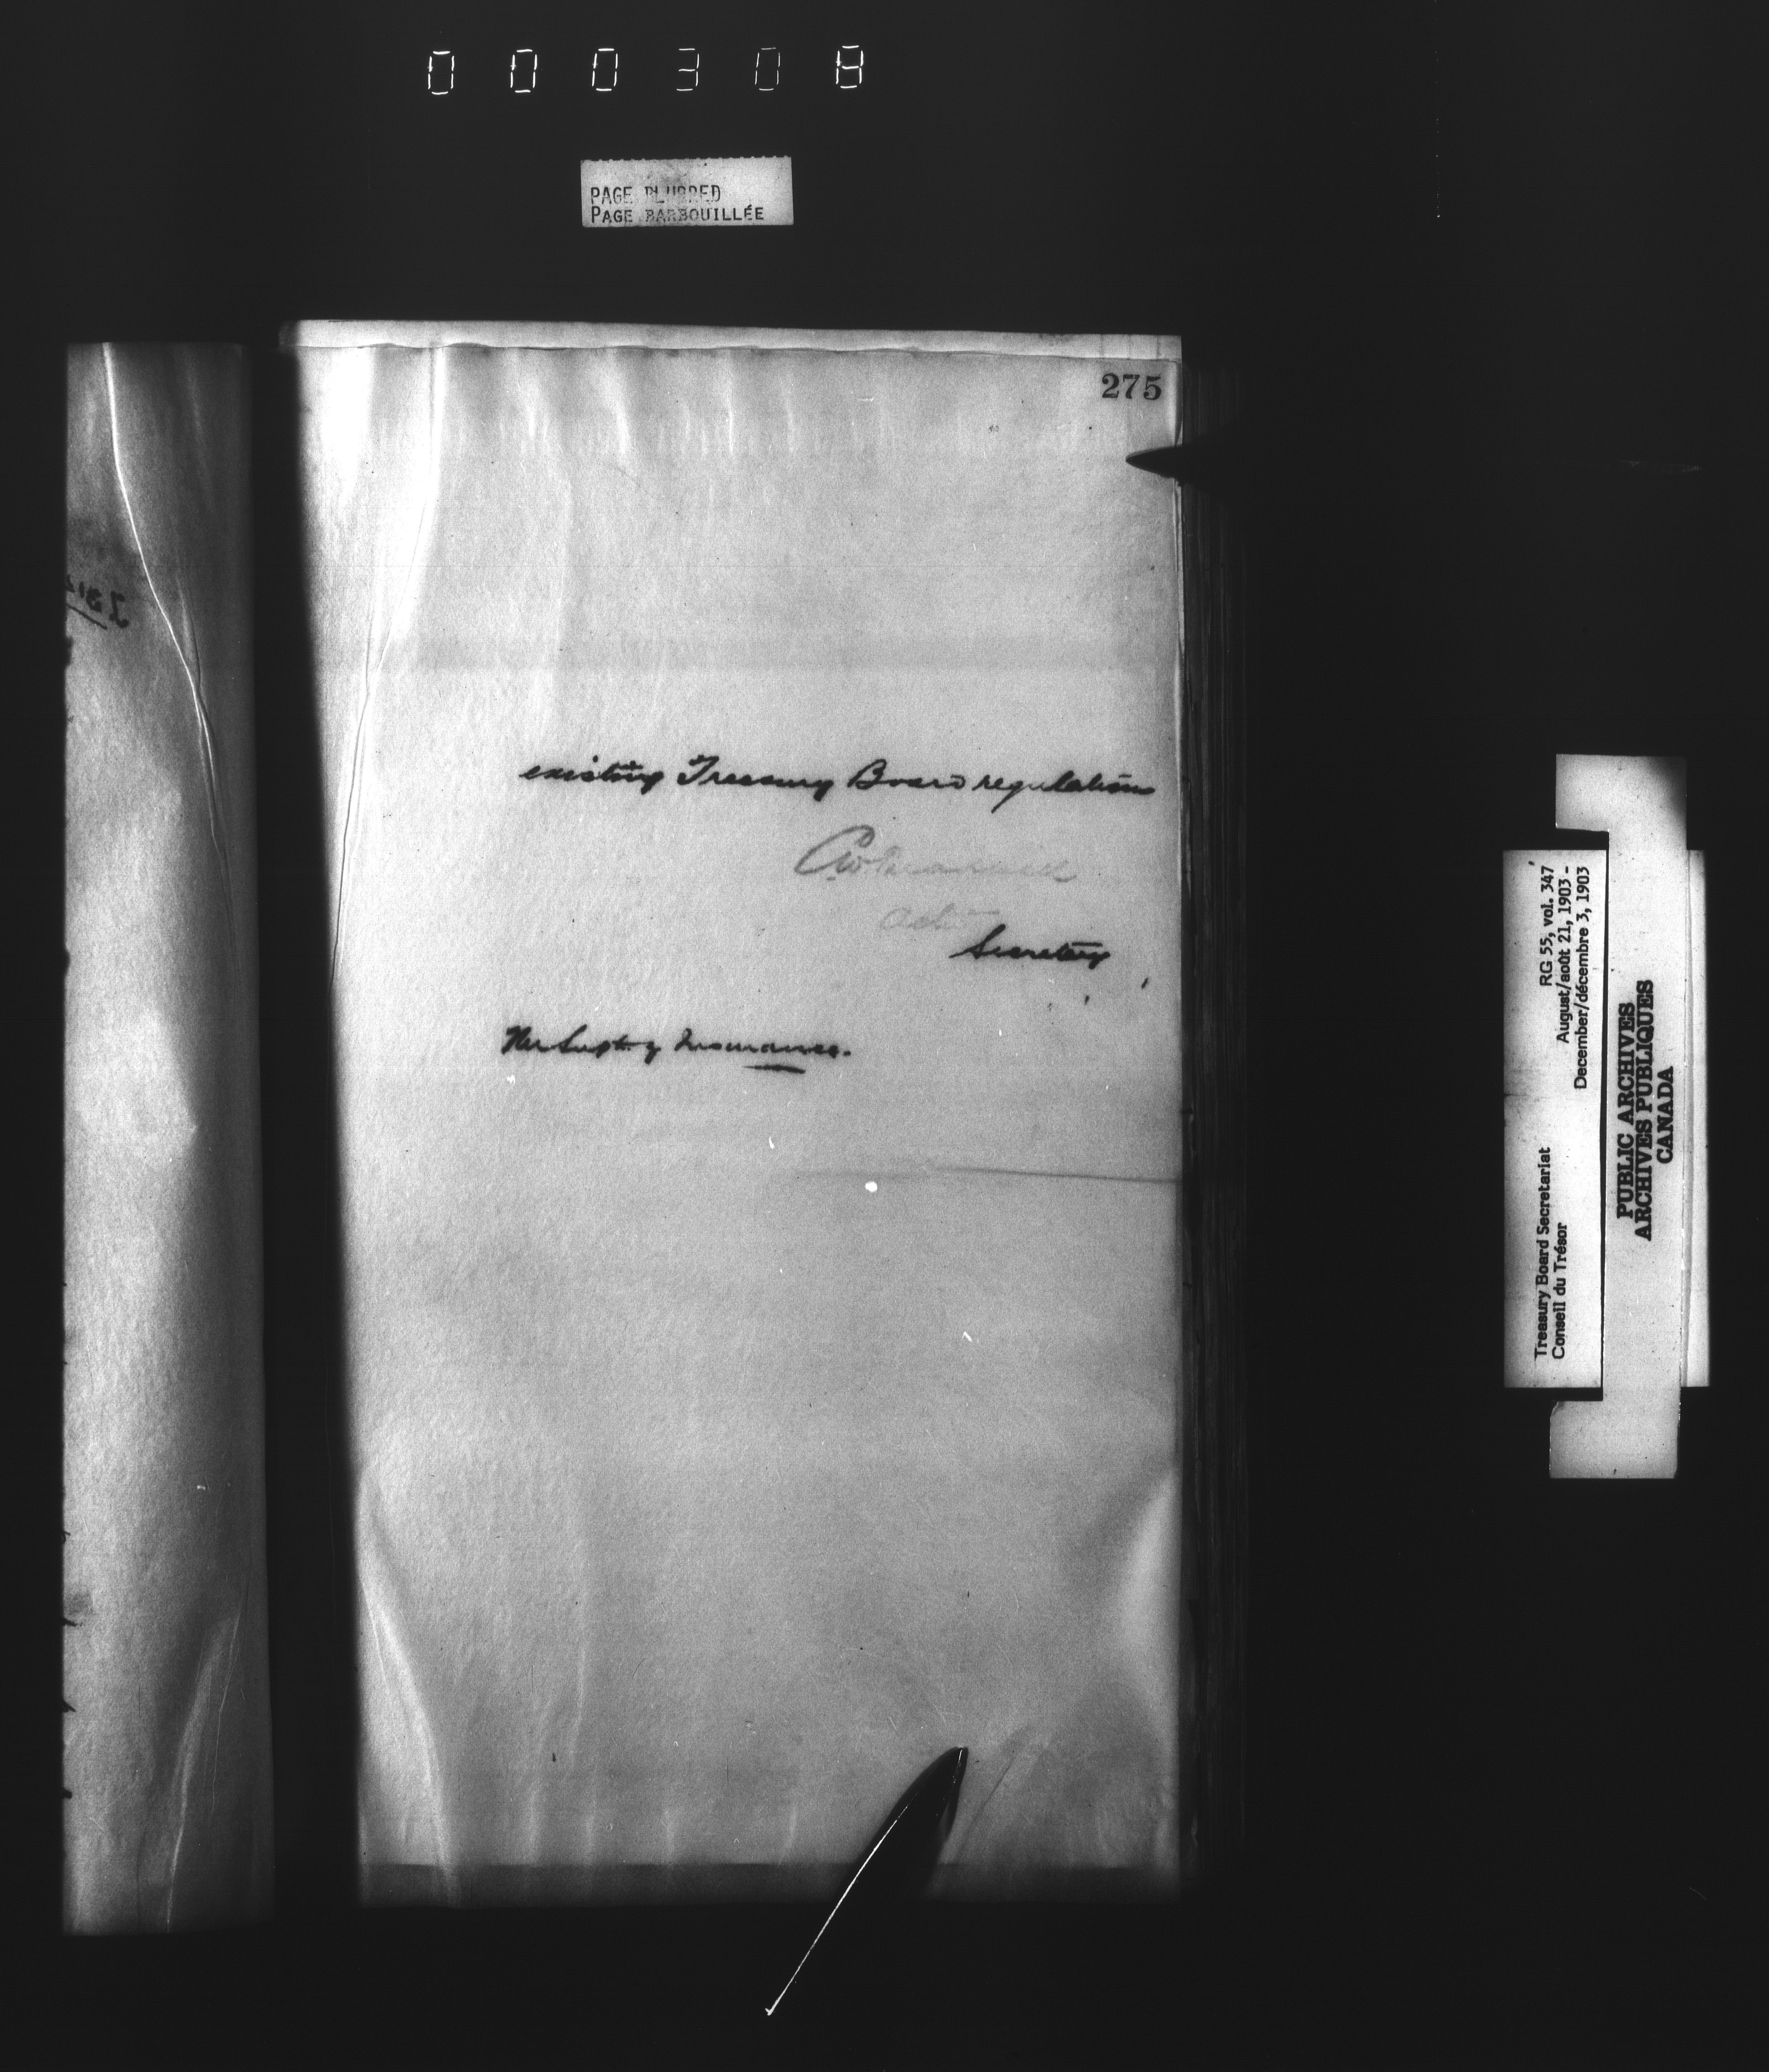 000308
PAGE BLURRED
PAGE BARBOUILLÉE
275
existing Treasury Board regulations
Actg
Secretary
The Supt. of Insurance.
RG 55, vol. 347
August/août 21, 1903 -
December/décembre 3, 1903
Treasury Board Secretariat
Conseil du Trésor
PUBLIC ARCHIVES
ARCHIVES PUBLIQUES
CANADA